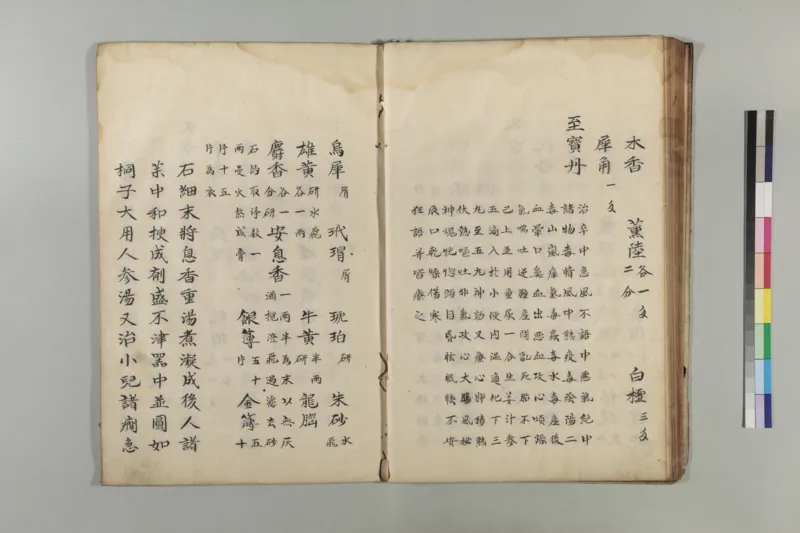 木香 薰陸 各一文二分 白檀 三文
犀角 一文
至寶丹
治卒中急風不語中惡氣絕中
諸物毒暗風中熱疫毒陰陽二
毒山嵐瘴氣毒蠱毒水毒產後
血暈口鼻血出惡血攻心煩躁
氣喘吐逆難產悶亂死胎不下
已上並用童尿一合生姜汁參
五滴入於小便內溫過化下三
丸至五丸神効又療心肺積熱
伏熱嘔吐邪氣攻心大腸風秘
神魂恍惚頭目昏眩眠睡不安
唇口乾燥傷寒
狂語并皆療之
烏犀 屑 玳瑁 屑 琥珀 研 朱砂 水飛
雄黃 研水飛各一兩 牛黃 半兩研 龍腦
麝香 各一分研 安息香 一兩半為末以無灰酒挹澄飛過濾去砂
石約取淨數一兩是火熬成膏 銀薄 五十片 金薄 五十
片十五片為衣
石細末將息香重湯煮凝成後人諸
藥中和梗成劑盛不津器中並圓如
桐子大用人參湯又治小兒諸癇急